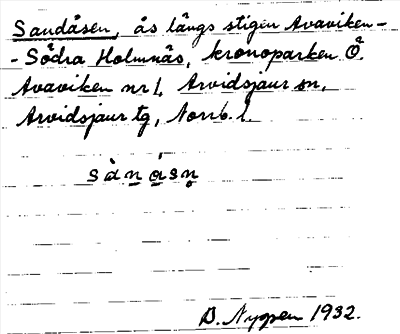 Sandåsen, ås längs stigen Avaviken -
- Södra Holmnäs, kronoparken Ö.
Avaviken nr 1, Arvidsjaur sn,
Arvidsjaur tg, Norrb. l.
sànåsn̥
D. Nygren 1932.